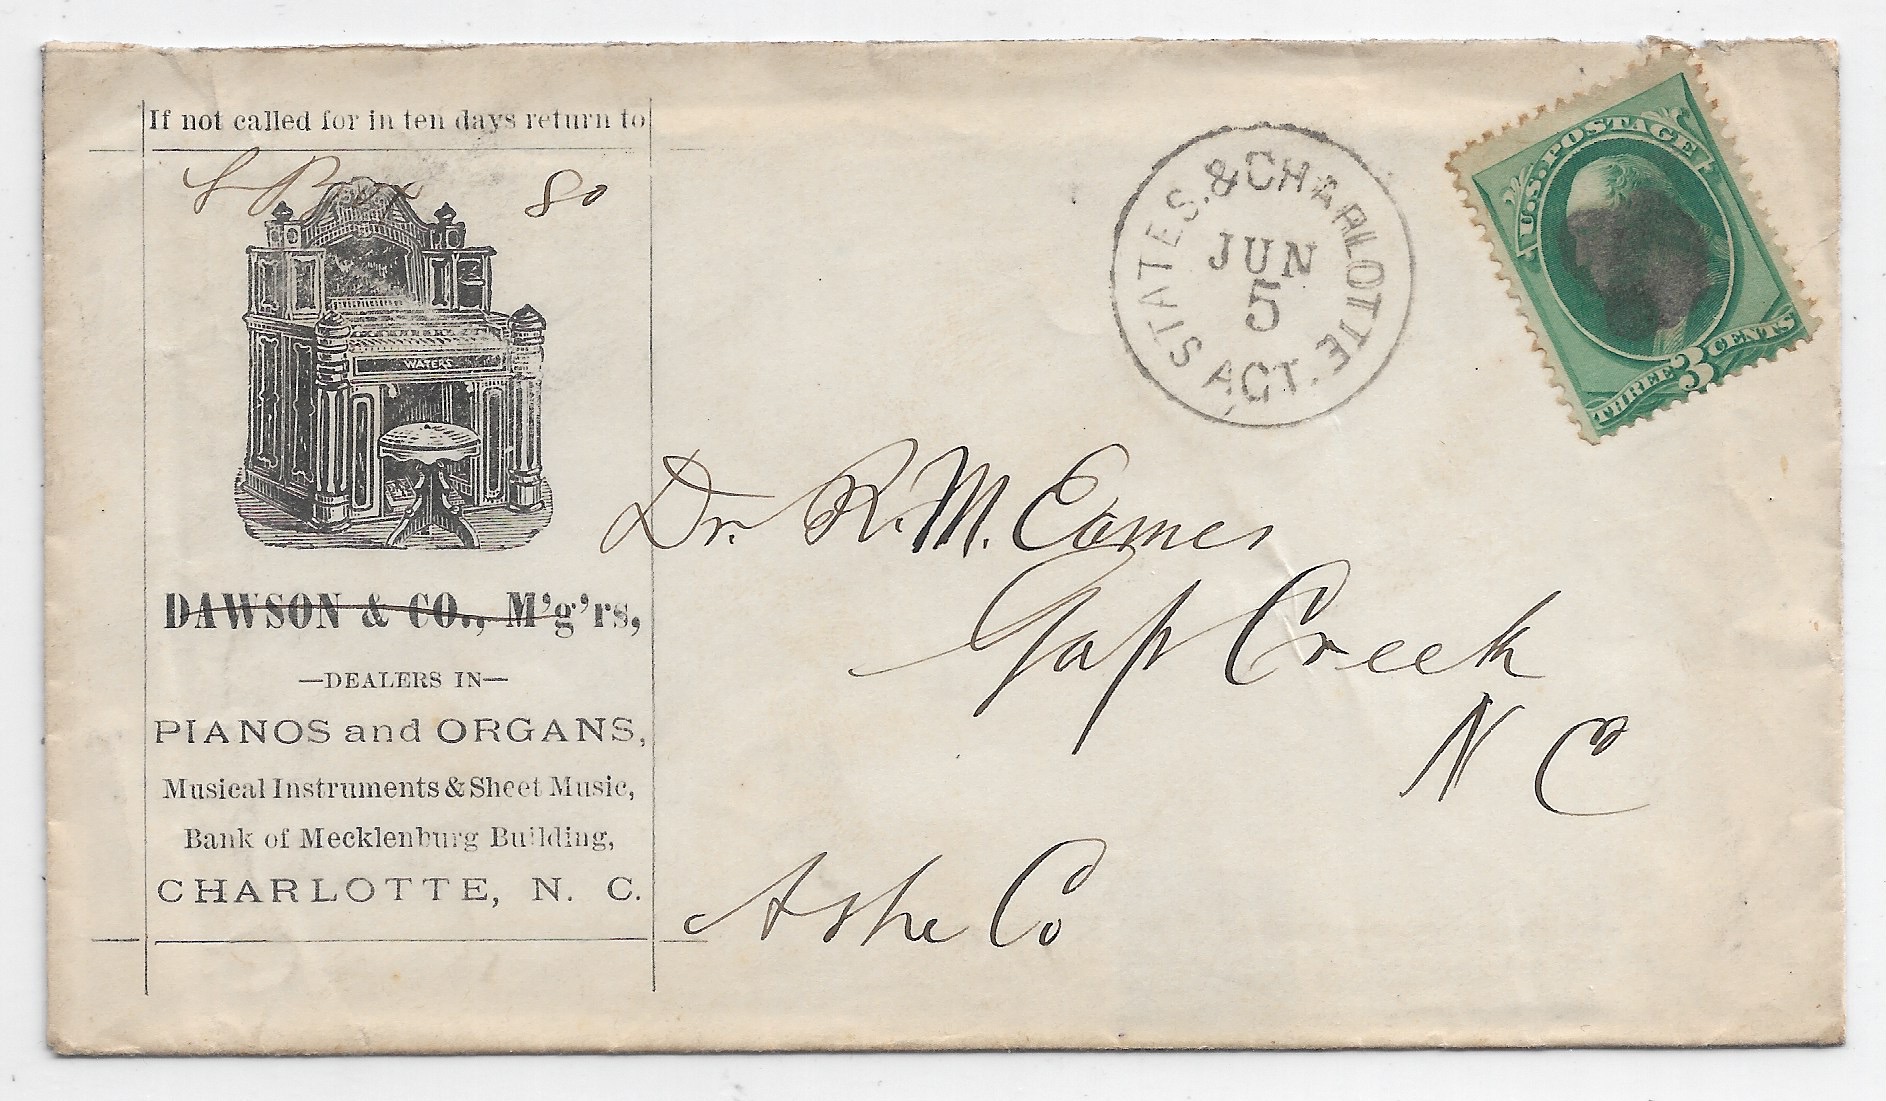 If not called for in ten days return to
Box 80
WATERS
DAWSON & CO., M'g'rs,
—DEALERS IN—
PIANOS and ORGANS,
Musical Instruments & Sheet Music,
Bank of Mecklenburg Building,
CHARLOTTE, N. C.
STATES. & CHARLOTTE AGT.
JUN
5
U.S. POSTAGE
THREE 3 CENTS
Dr. R. M. Eames
Gap Creek
N C
Ashe Co